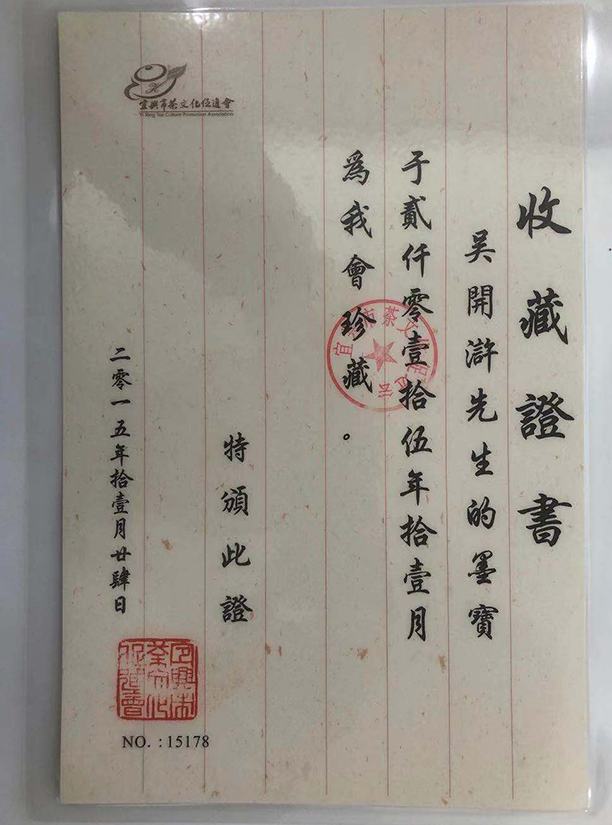 收藏證書
吳開滸先生的墨寶
于貳仟零壹拾伍年拾壹月
為我會珍藏。
特頒此證
二零一五年拾壹月廿肆日
宜興市茶文化促進會
Yi Xing Tea Culture Promotion Association
宜興市茶文化促進會
NO. : 15178